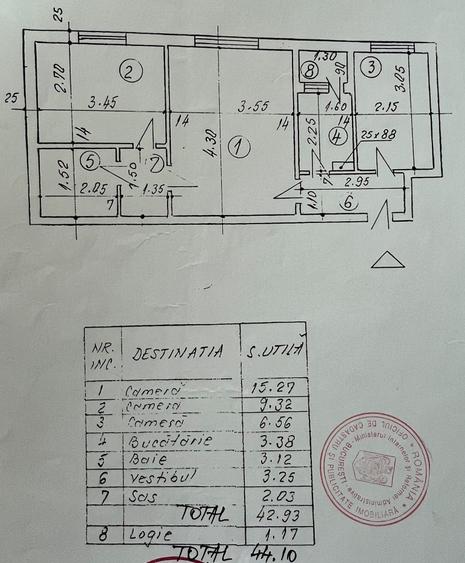 25
2.70
2
3.45
25
14
5
1.52
2.05
7
1.50
7
1.35
14
3.55
4.30
1
14
8
1.30
90
1.60
14
2.25
4
25x88
7
3
3.05
2.15
2.95
1.10
6
NR. INC. DESTINATIA S. UTILA
1 Camera 15.27
2 Camera 9.32
3 Camera 6.56
4 Bucătărie 3.38
5 Baie 3.12
6 Vestibul 3.25
7 Sas 2.03
TOTAL 42.93
8 Logie 1.17
TOTAL 44.10
ROMÂNIA
OFICIUL DE CADASTRU ȘI PUBLICITATE IMOBILIARĂ
BUCUREȘTI
Ministerul Internelor și Reformei Administrative